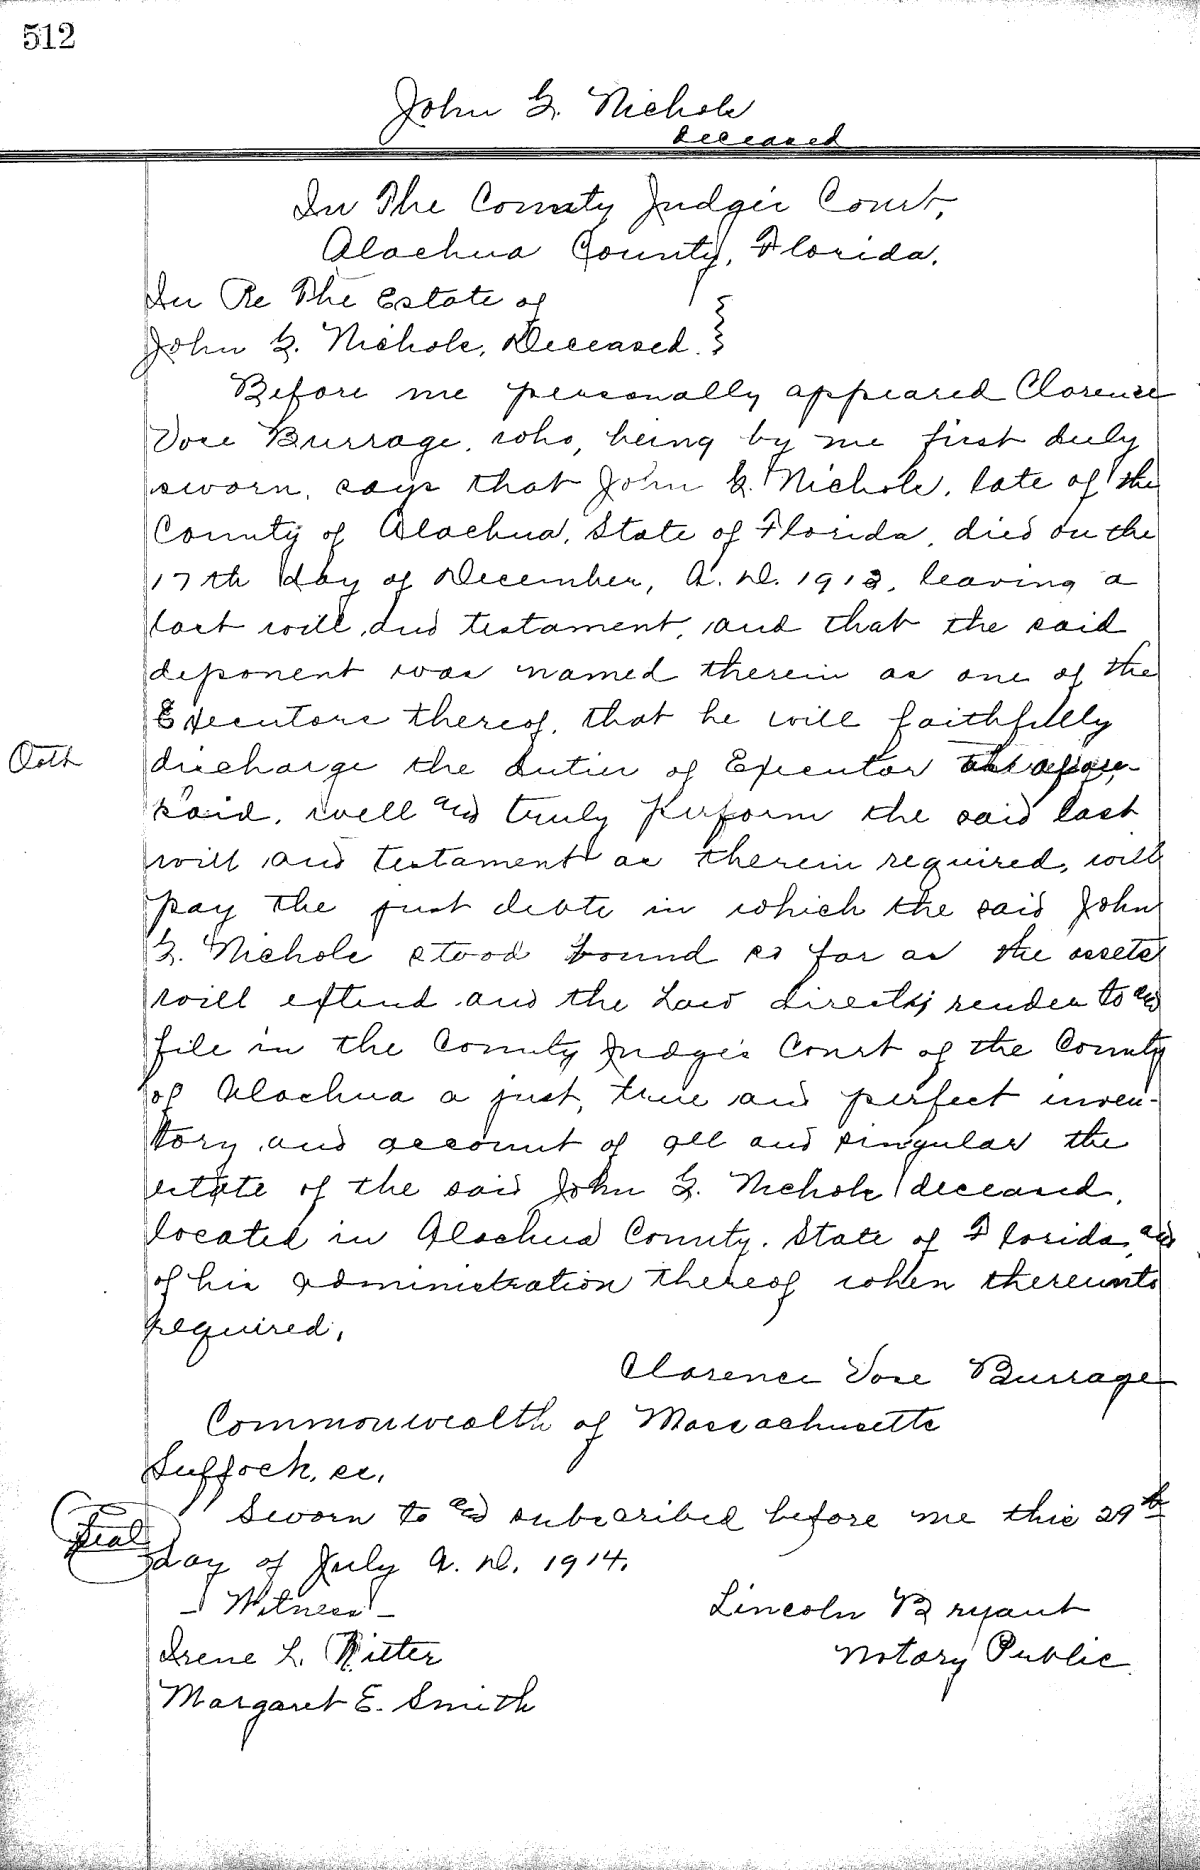 512
John G. Nichols
deceased
In The County Judge's Court,
Alachua County, Florida.
In Re The Estate of
John G. Nichols, Deceased.
Before me personally appeared Clarence
Vose Burrage, who, being by me first duly
sworn, says that John G. Nichols, late of the
County of Alachua, State of Florida, died on the
17th day of December, A. D. 1913, leaving a
last will and testament, and that the said
deponent was named therein as one of the
Executors thereof, that he will faithfully
Oath
discharge the duties of Executor as afore-
said, well and truly perform the said last
will and testament as therein required, will
pay the just debts in which the said John
G. Nichols stood bound so far as the assets
will extend and the Law directs; render to and
file in the County Judge's Court of the County
of Alachua a just, true and perfect inven-
tory and account of all and singular the
estate of the said John G. Nichols deceased,
located in Alachua County, State of Florida, and
of his administration thereof when thereunto
required.
Clarence Vose Burrage
Commonwealth of Massachusetts
Suffock, ss.
Sworn to and subscribed before me this 29th
Seal
day of July A. D. 1914.
- Witness -
Lincoln Bryant
Irene L. Ritter
Notary Public
Margaret E. Smith